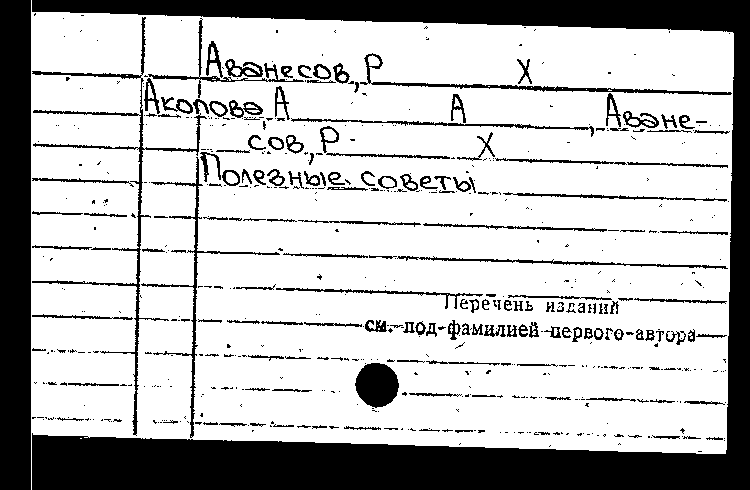 Аванесов, Р Х
Акопова, А А , Аване-
сов, Р Х
Полезные советы
Перечень изданий
см. под фамилией первого автора